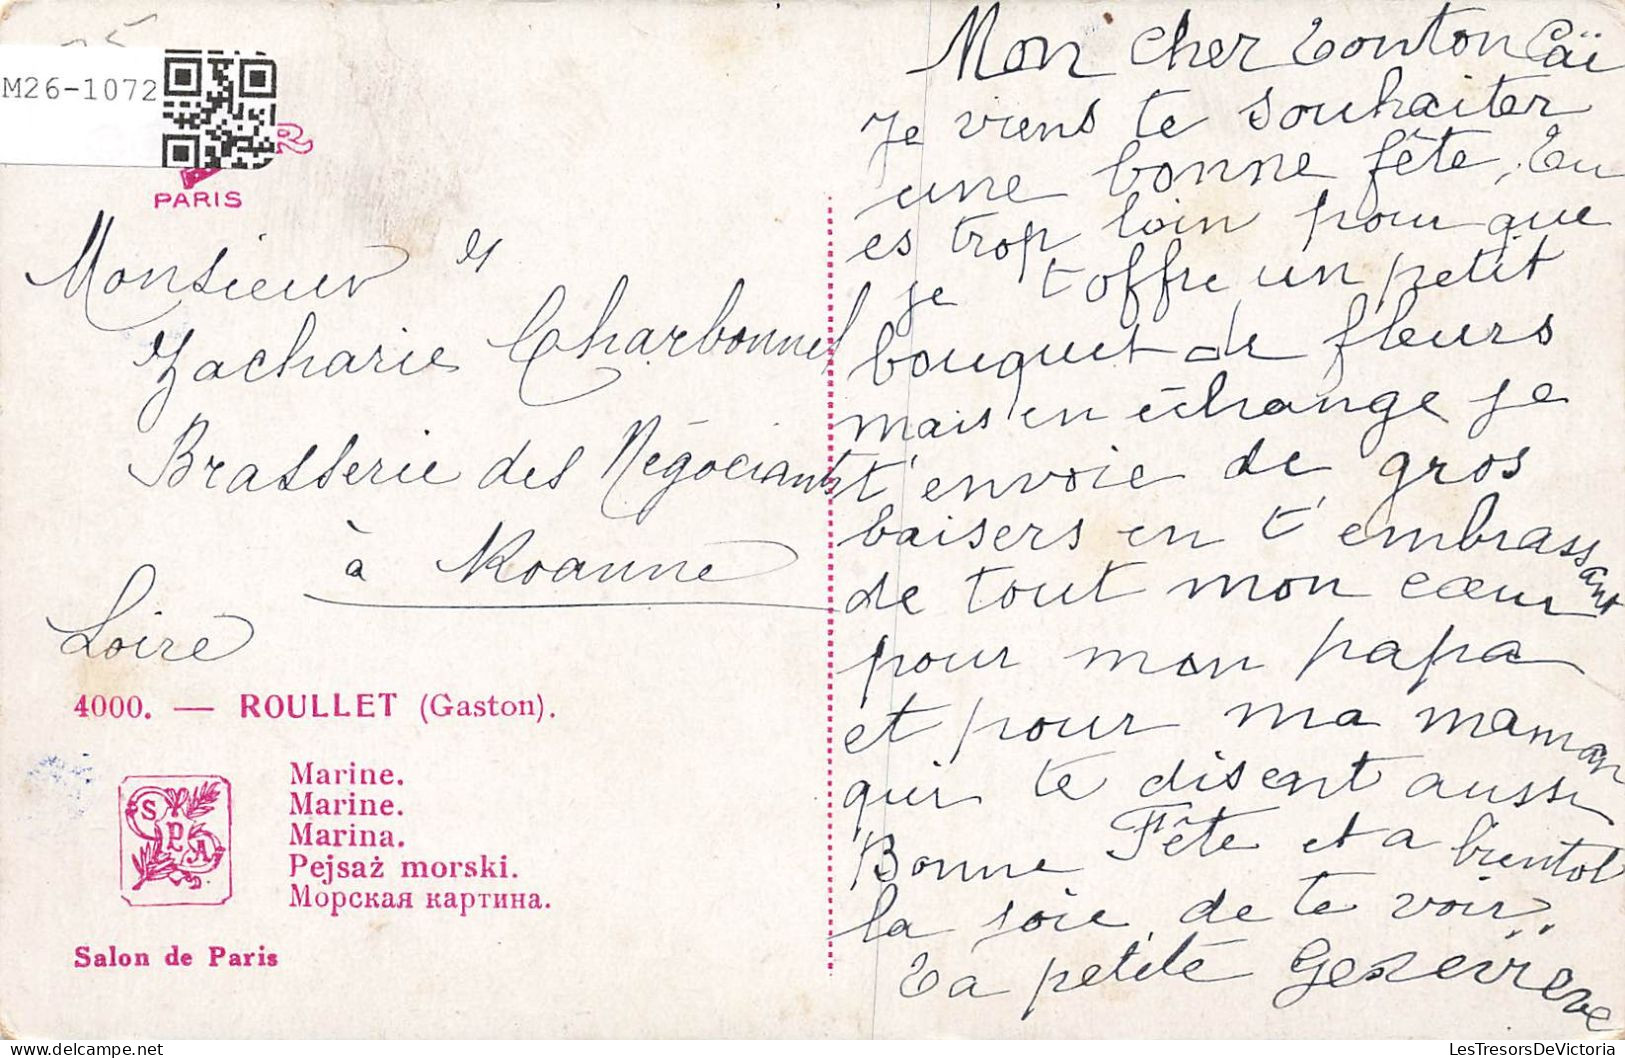 M26-1072
PARIS
Monsieur
Zacharie Charbonnel
Brasserie des Négociants
à Roanne
Loire
4000. — ROULLET (Gaston).
Marine.
Marine.
Marina.
Pejsaż morski.
Морская картина.
SPA
Salon de Paris
Mon cher Tonton Caï
Je viens te souhaiter
une bonne fête, Tu
es trop loin pour que
je t'offre un petit
bouquet de fleurs
mais en échange je
t'envoie de gros
baisers en t'embrassant
de tout mon cœur
pour mon papa
et pour ma maman
qui te disent aussi
Bonne Fête et a bientot
la joie de te voir..
Ta petite Geneviève
LesTresorsDeVictoria